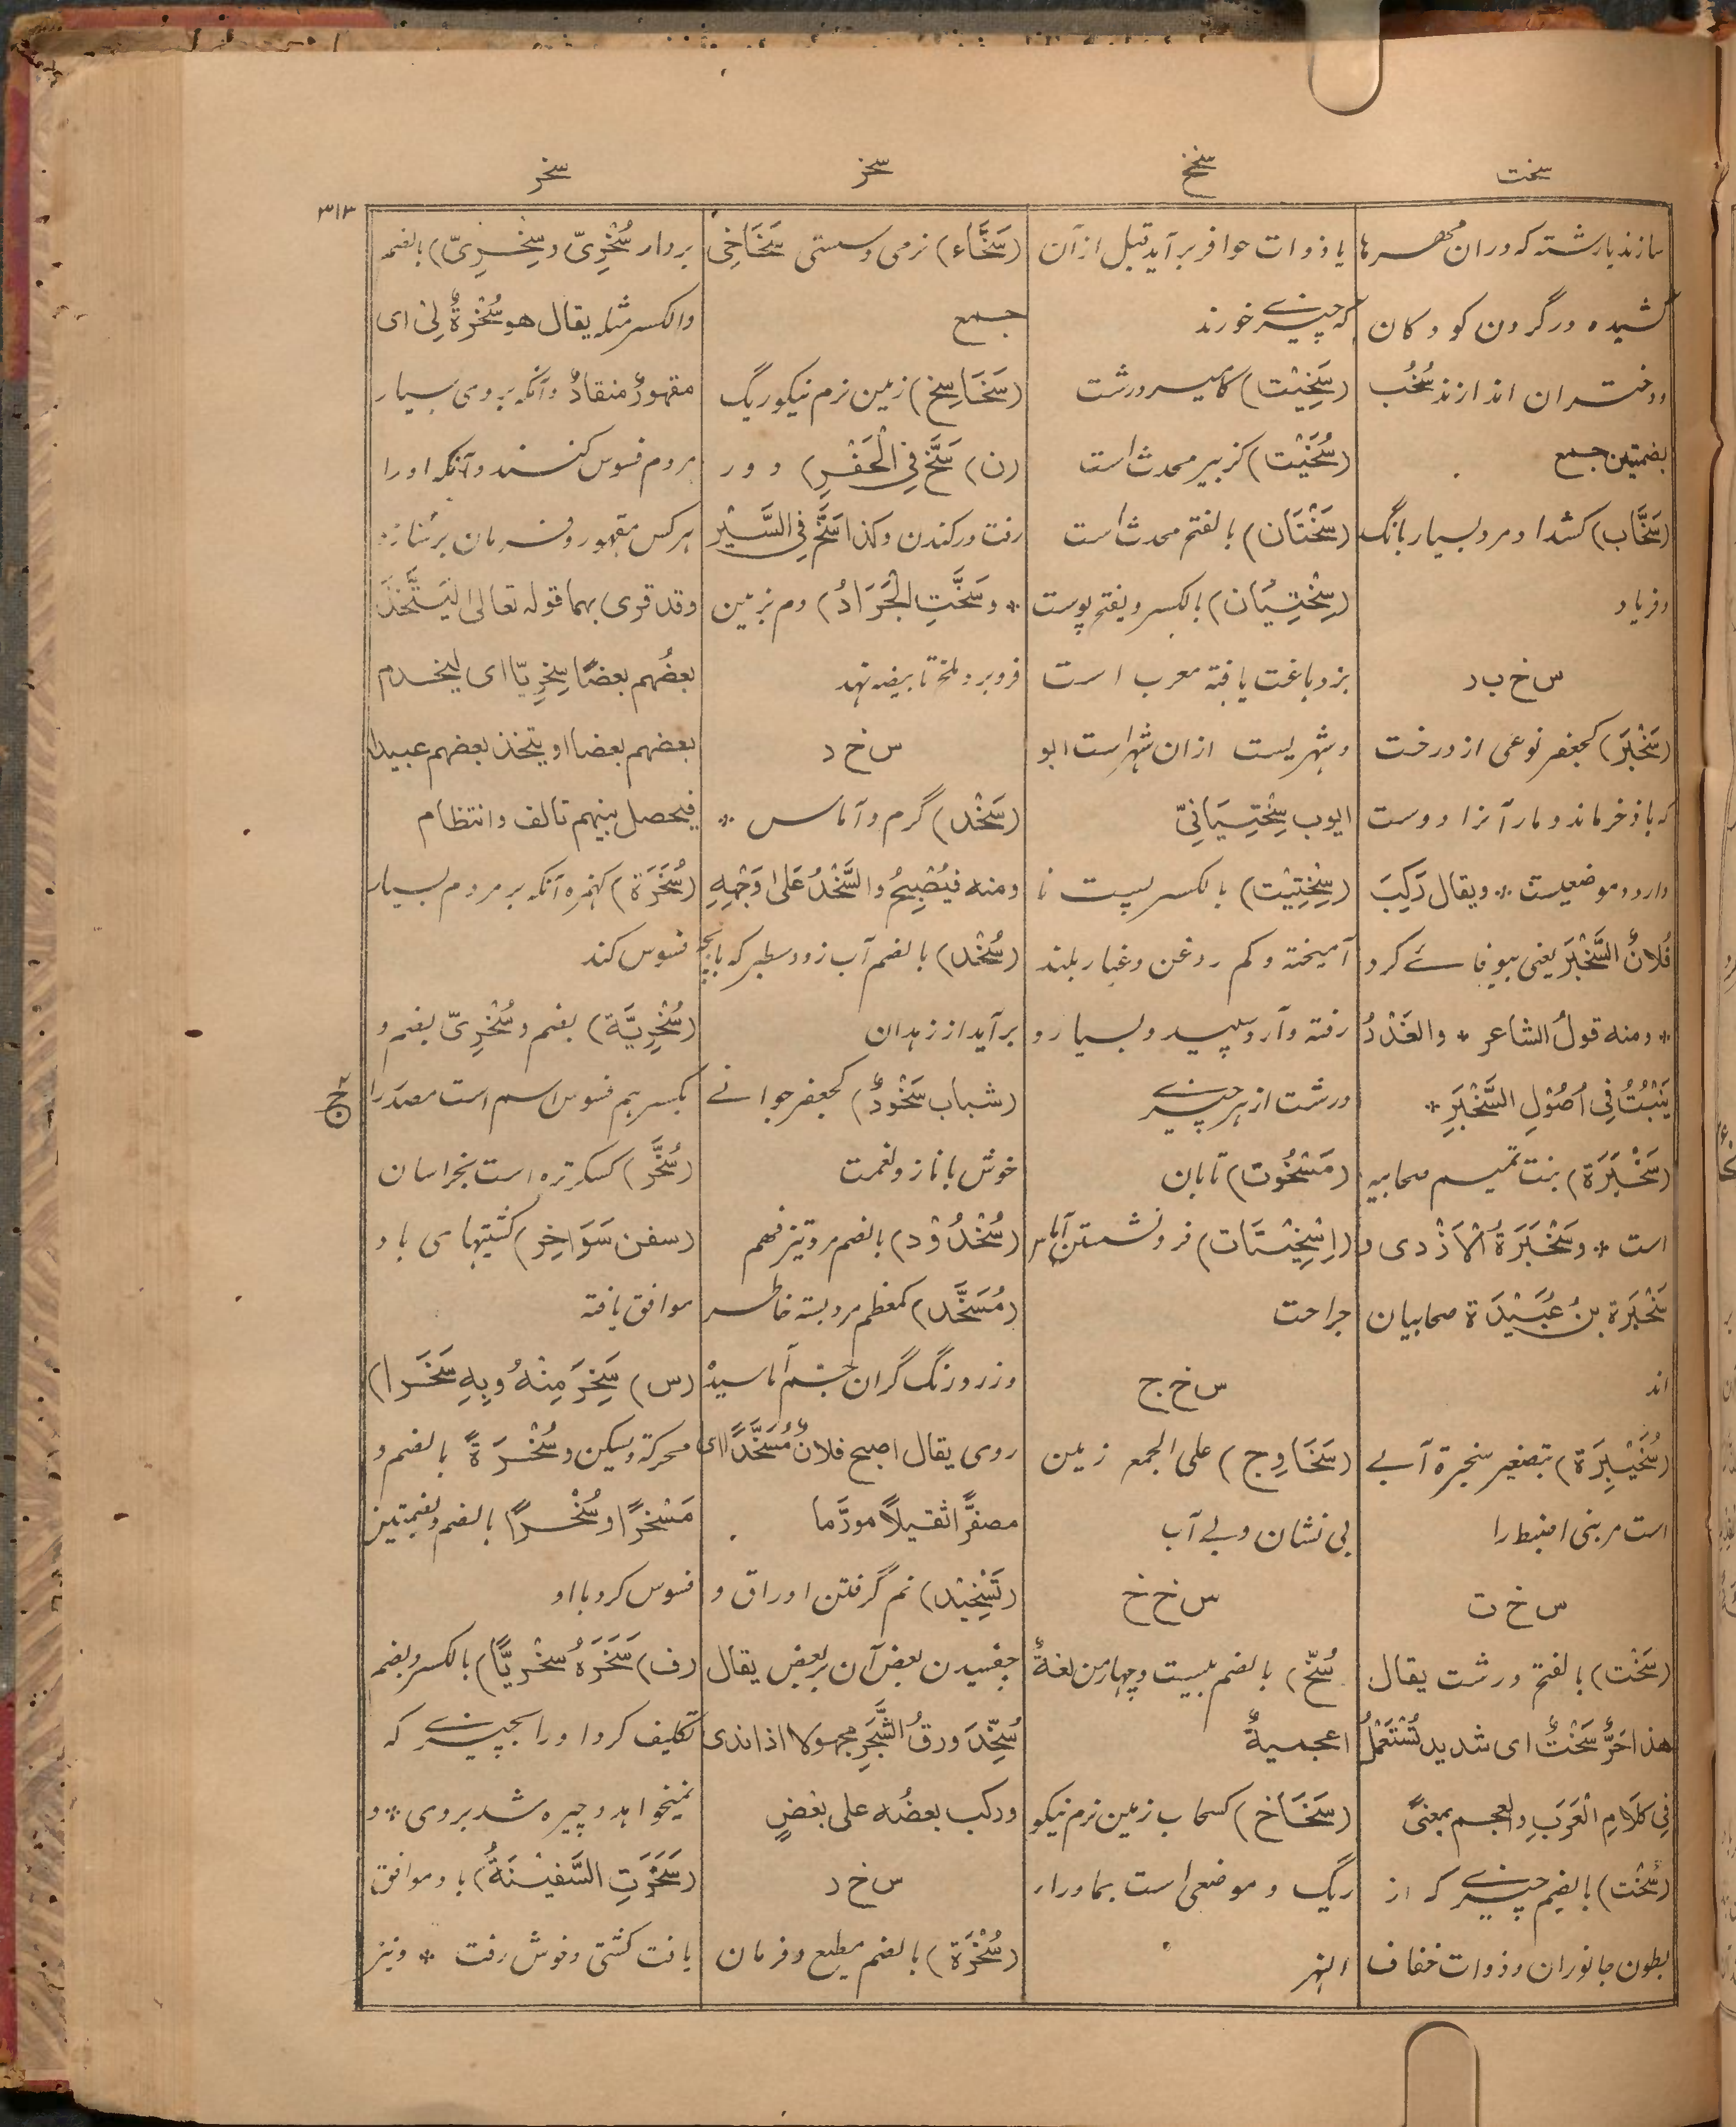 سخت
سخخ
سخز
سخر
۳۱۳
سازند یا رشته که دران مهره‌ها
کشیده در گردن کودکان
و دختران اندازند سُخُب
بضمتین جمع
(سَخَّاب) کشداد مرد بسیار بانگ
و فریاد
س خ ب ر
(سَخْبَر) کجعفر نوعی از درخت
که باذخر ماند و مار آنرا دوست
دارد و موضعیست * و یقال رَکِبَ
فُلانٌ السَّخْبَرَ یعنی بیوفائے کرد
* و منه قولُ الشاعر * والغَدْرُ
یَنْبُتُ فِی اُصُوْلِ السَّخْبَرِ *
(سَخْبَرَة) بنت تمیم صحابیه
است * و سَخْبَرَةُ الْاَزْدی و
سَخْبَرَة بنُ عُبَیْدَة صحابیان
اند
(سُخَیْبِرَة) بتصغیر سخبرة آبے
است مر بنی اضبط را
س خ ت
(سَخْت) بالفتح درشت یقال
هذا حَرٌّ سَخْتٌ ای شدید تُسْتَعْمَلُ
فِی کَلَامِ الْعَرَبِ والعجم بمعنیً
(سُخْت) بالضم چیزے که از
بطون جانوران و ذوات خفاف
یا ذوات حوافر برآید قبل ازآن
که چیزے خورند
(سَخِیْت) کامیر درشت
(سُخَیْت) کزبیر محدث است
(سَخْتَان) بالفتح محدث است
(سِخْتِیَان) بالکسر و یفتح پوست
بز دباغت یافته معرب است
و شهریست ازان شهر است ابو
ایوب سِخْتِیَانِیّ
(سِخْتِیْت) بالکسر پست نا
آمیخته و کم روغن و غبار بلند
رفته و آرد سپید و بسیار و
درشت از هر چیزے
(مَسْخُوت) تابان
(اِسْخِیْتَات) فرو نشستن آماس
جراحت
س خ ج
(سَخَاوِج) علی الجمع زمین
بی نشان و بے آب
س خ خ
سُخّ) بالضم بیست و چهار من لغةٌ
اعجمیةٌ
(سَخَاخ) کسحاب زمین نرم نیکو
ریگ و موضعی است بماوراء
النهر
(سَخَّاء) نرمی و سستی سَخَاخِی
جمع
(سَخَاسِخ) زمین نرم نیکو ریگ
(ن) سَخَّ فِی الْحَفْرِ) دور
رفت در کندن و کذا سَخَّ فِی السَّیْر
* و سَخَّتِ الْجَرَادُ) دم بزمین
فرو برد ملخ تا بیضه نهد
س خ د
(سَخْد) گرم و آماس *
و منه فیُصْبِحُ والسُّخْدُ عَلٰی وَجْهِهِ
(سُخْد) بالضم آب زرد سطبر که با بچه
برآید از زهدان
(شباب سَخْوَدٌ) کجعفر جوانے
خوش با ناز و نعمت
(سُخْدُوْد) بالضم مرد تیز فهم
(مُسَخَّد) کمعظم مرد بسته خاطر
و زرد رنگ گران جسم آماسیده
روی یقال اصبح فلانٌ مُسَخَّدًا ای
مصفرًّا ثقیلاً مورّما
(تَسْخِیْد) نم گرفتن اوراق و
چفسیدن بعض آن بر بعض یقال
سُخِّدَ ورقُ الشَّجَرِ مجهولا اذا ندی
ورکب بعضُه علی بَعْضٍ
س خ ر
(سُخْرَة) بالضم مطیع و فرمان
بردار سُخْرِیّ و سِخْرِیّ) بالضم
والکسر مثله یقال هو سُخْرَةٌ لِیْ ای
مقهورٌ منقادٌ و آنکه بر وی بسیار
مردم فسوس کنند و آنکه او را
هر کس مقهور و فرمان بردار سازد
وقد قری بهما قوله تعالی لیَتَّخِذَ
بعضُهم بعضًا سِخْرِیّا ای لیخدم
بعضهم بعضا او یتخذ بعضهم عبیدا
فیحصل بینهم تالف و انتظام
(سُخَرَة) کهمزه آنکه بر مردم بسیار
فسوس کند
(سُخْرِیَّة) بضم و سُخْرِیّ بضم و
بکسر هم فسوس اسم است مصدر را
(سُخَّر) کسکر تره است بخراسان
(سفن سَوَاخِر) کشتیهای باد
موافق یافته
(س) سَخِرَ مِنْهُ وبِهِ سَخَرا)
محرکة و یسکن و سُخْرَةً بالضم و
مَسْخَرًا و سُخْرًا بالضم و بضمتین
فسوس کرد با او
(ف) سَخَرَهُ سِخْرِیًّا) بالکسر و بضم
تکلیف کرد او را بچیزے که
نمیخواهد و چیره شد بر وی * و
(سَخَرَتِ السَّفِیْنَةُ) باد موافق
یافت کشتی و خوش رفت * و نیز